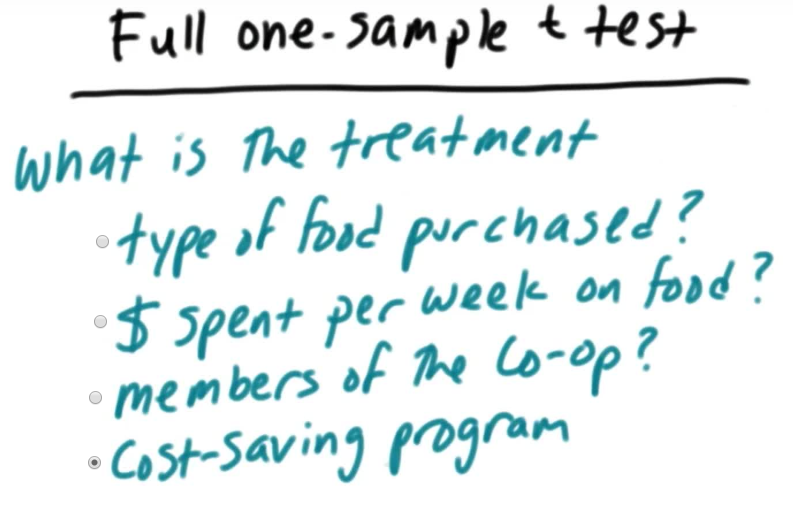 Full one-sample t test
What is the treatment
type of food purchased?
$ spent per week on food?
members of the Co-op?
Cost-saving program